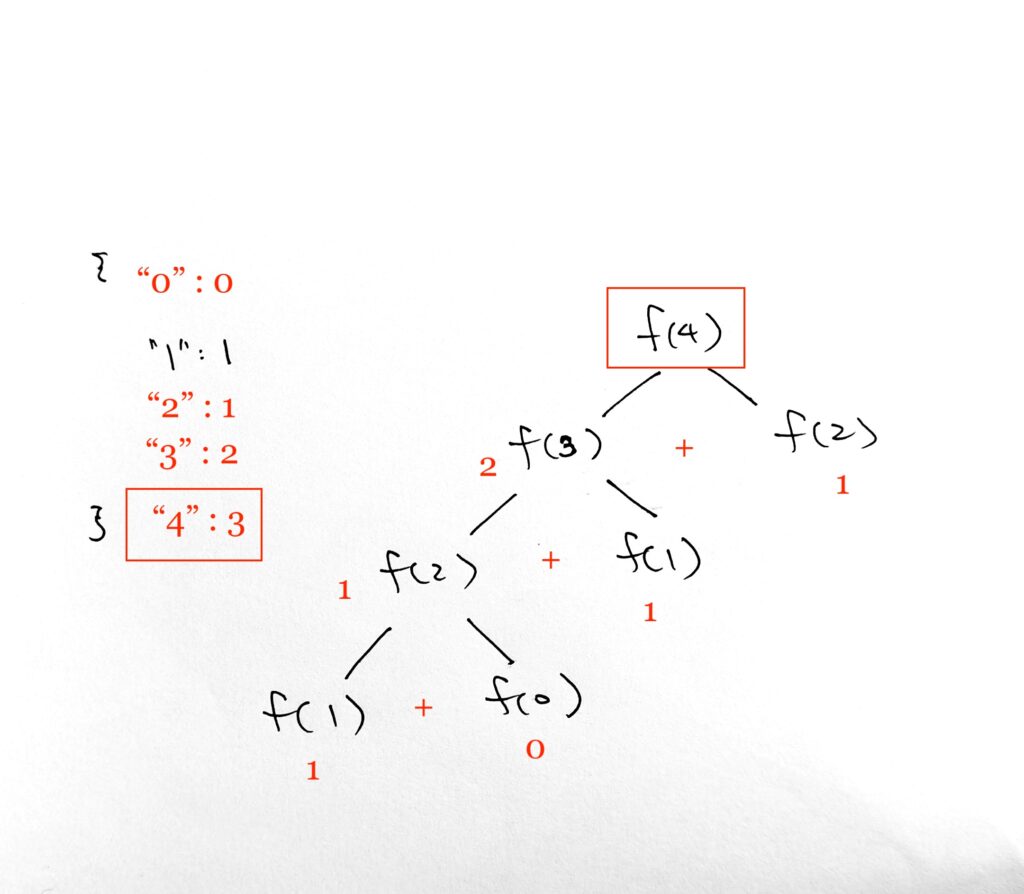 {
“0” : 0
"1" : 1
“2” : 1
“3” : 2
} “4” : 3
f(4)
2 f(3) + f(2)
1
1 f(2) + f(1)
1
f(1) + f(0)
1 0